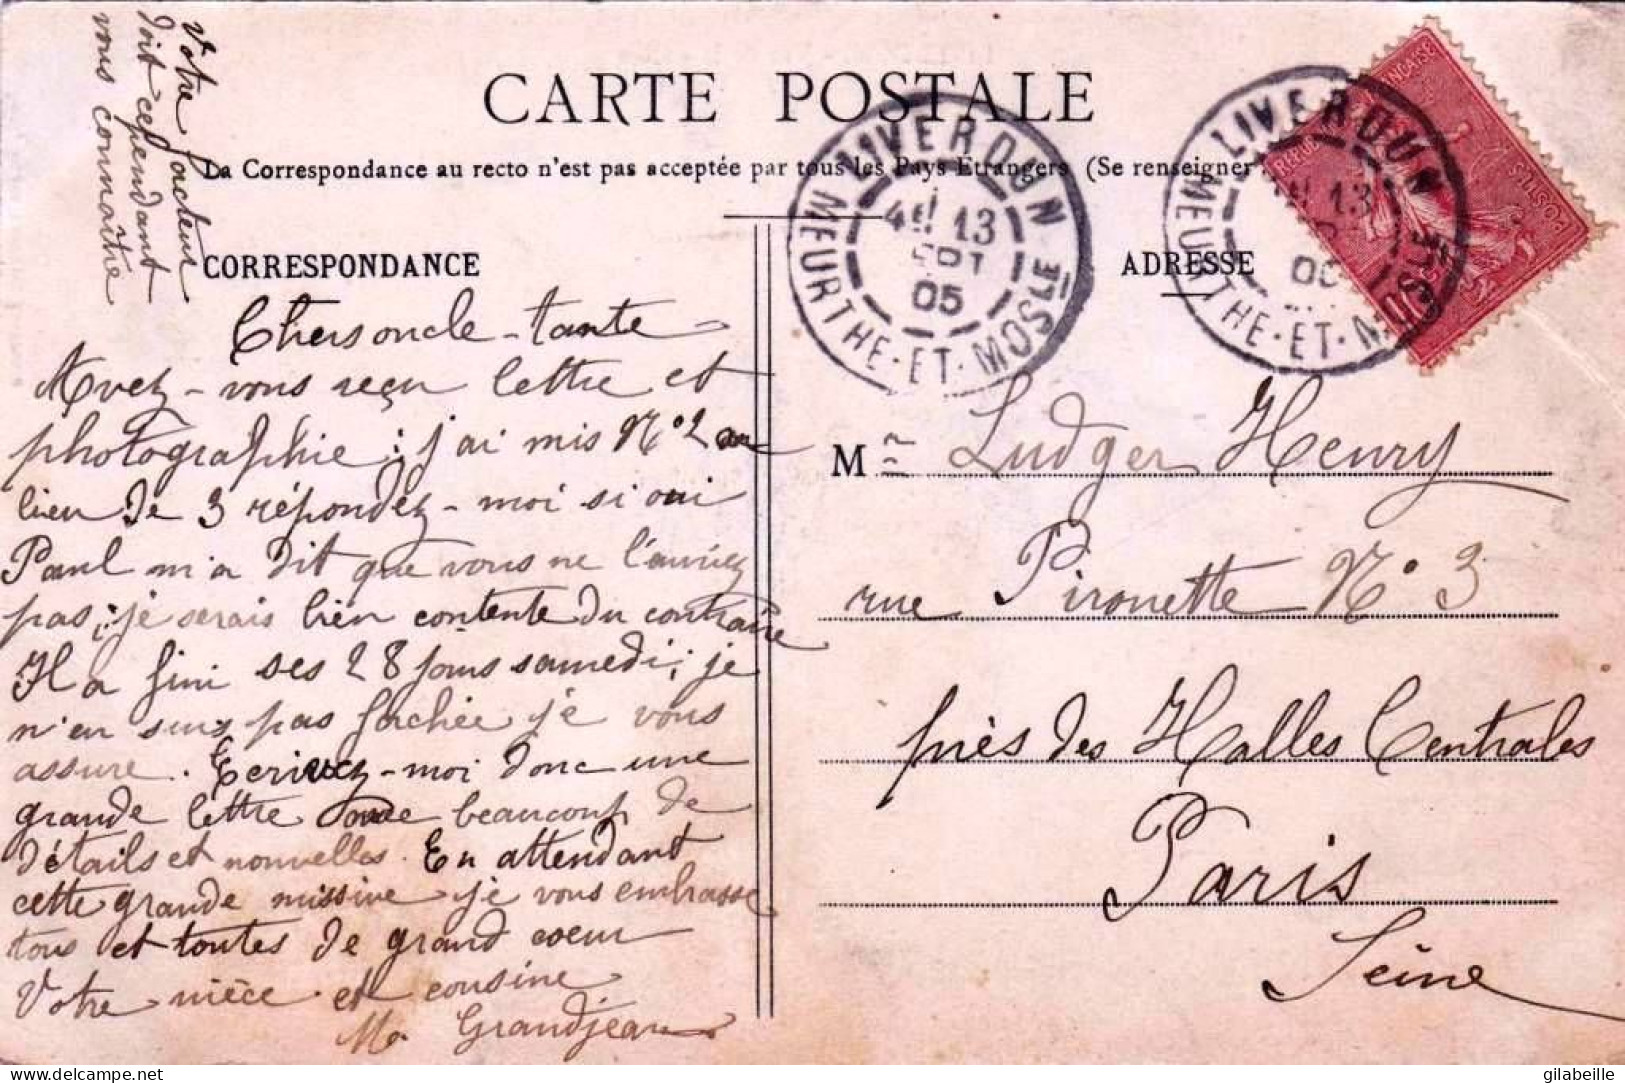 Votre facteur
doit cependant
vous connaître
CARTE POSTALE
La Correspondance au recto n'est pas acceptée par tous les Pays Etrangers (Se renseigner
CORRESPONDANCE
Chers oncle - tante
Avez - vous reçu lettre et
photographie ; j'ai mis N° 2 au
lieu de 3 répondez - moi si oui
Paul m'a dit que vous ne l'auriez
pas ; je serais bien contente du contraire
Il a fini ses 28 jours samedi ; je
n'en suis pas fachée je vous
assure. Ecrivez - moi donc une
grande lettre beaucoup de
détails et nouvelles. En attendant
cette grande missive je vous embrasse
tous et toutes de grand coeur
Votre nièce et cousine
Ma Grandjean
LIVERDUN
4E 13
SEPT
05
MEURTHE-ET-MOSLE
ADRESSE
LIVERDUN
13
05
MEURTHE-ET-MOSLE
REPUBLIQUE FRANÇAISE
POSTES
10
M Ludger Henry
rue Pirouette N° 3
près des Halles Centrales
Paris
Seine
delcampe.net
gilabeille